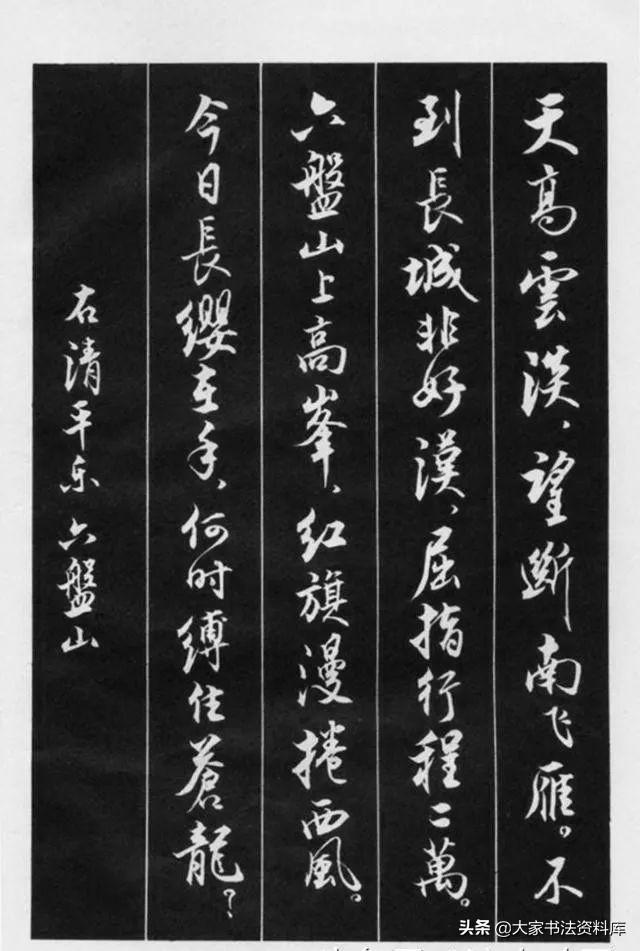 天高雲淡、望斷南飞雁。不
到長城非好漢、屈指行程二萬。
六盤山上高峯、红旗漫捲西風。
今日長纓在手、何时缚住蒼龍？
右清平乐 六盤山
头条 @大家书法资料库